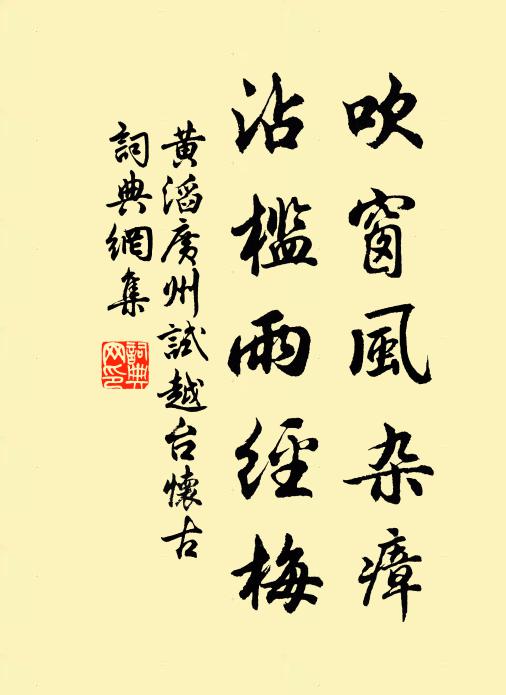 吹窗風杂瘴
沾檻雨經梅
黄滔廣州試越台懷古
詞典網集
詞典
网印